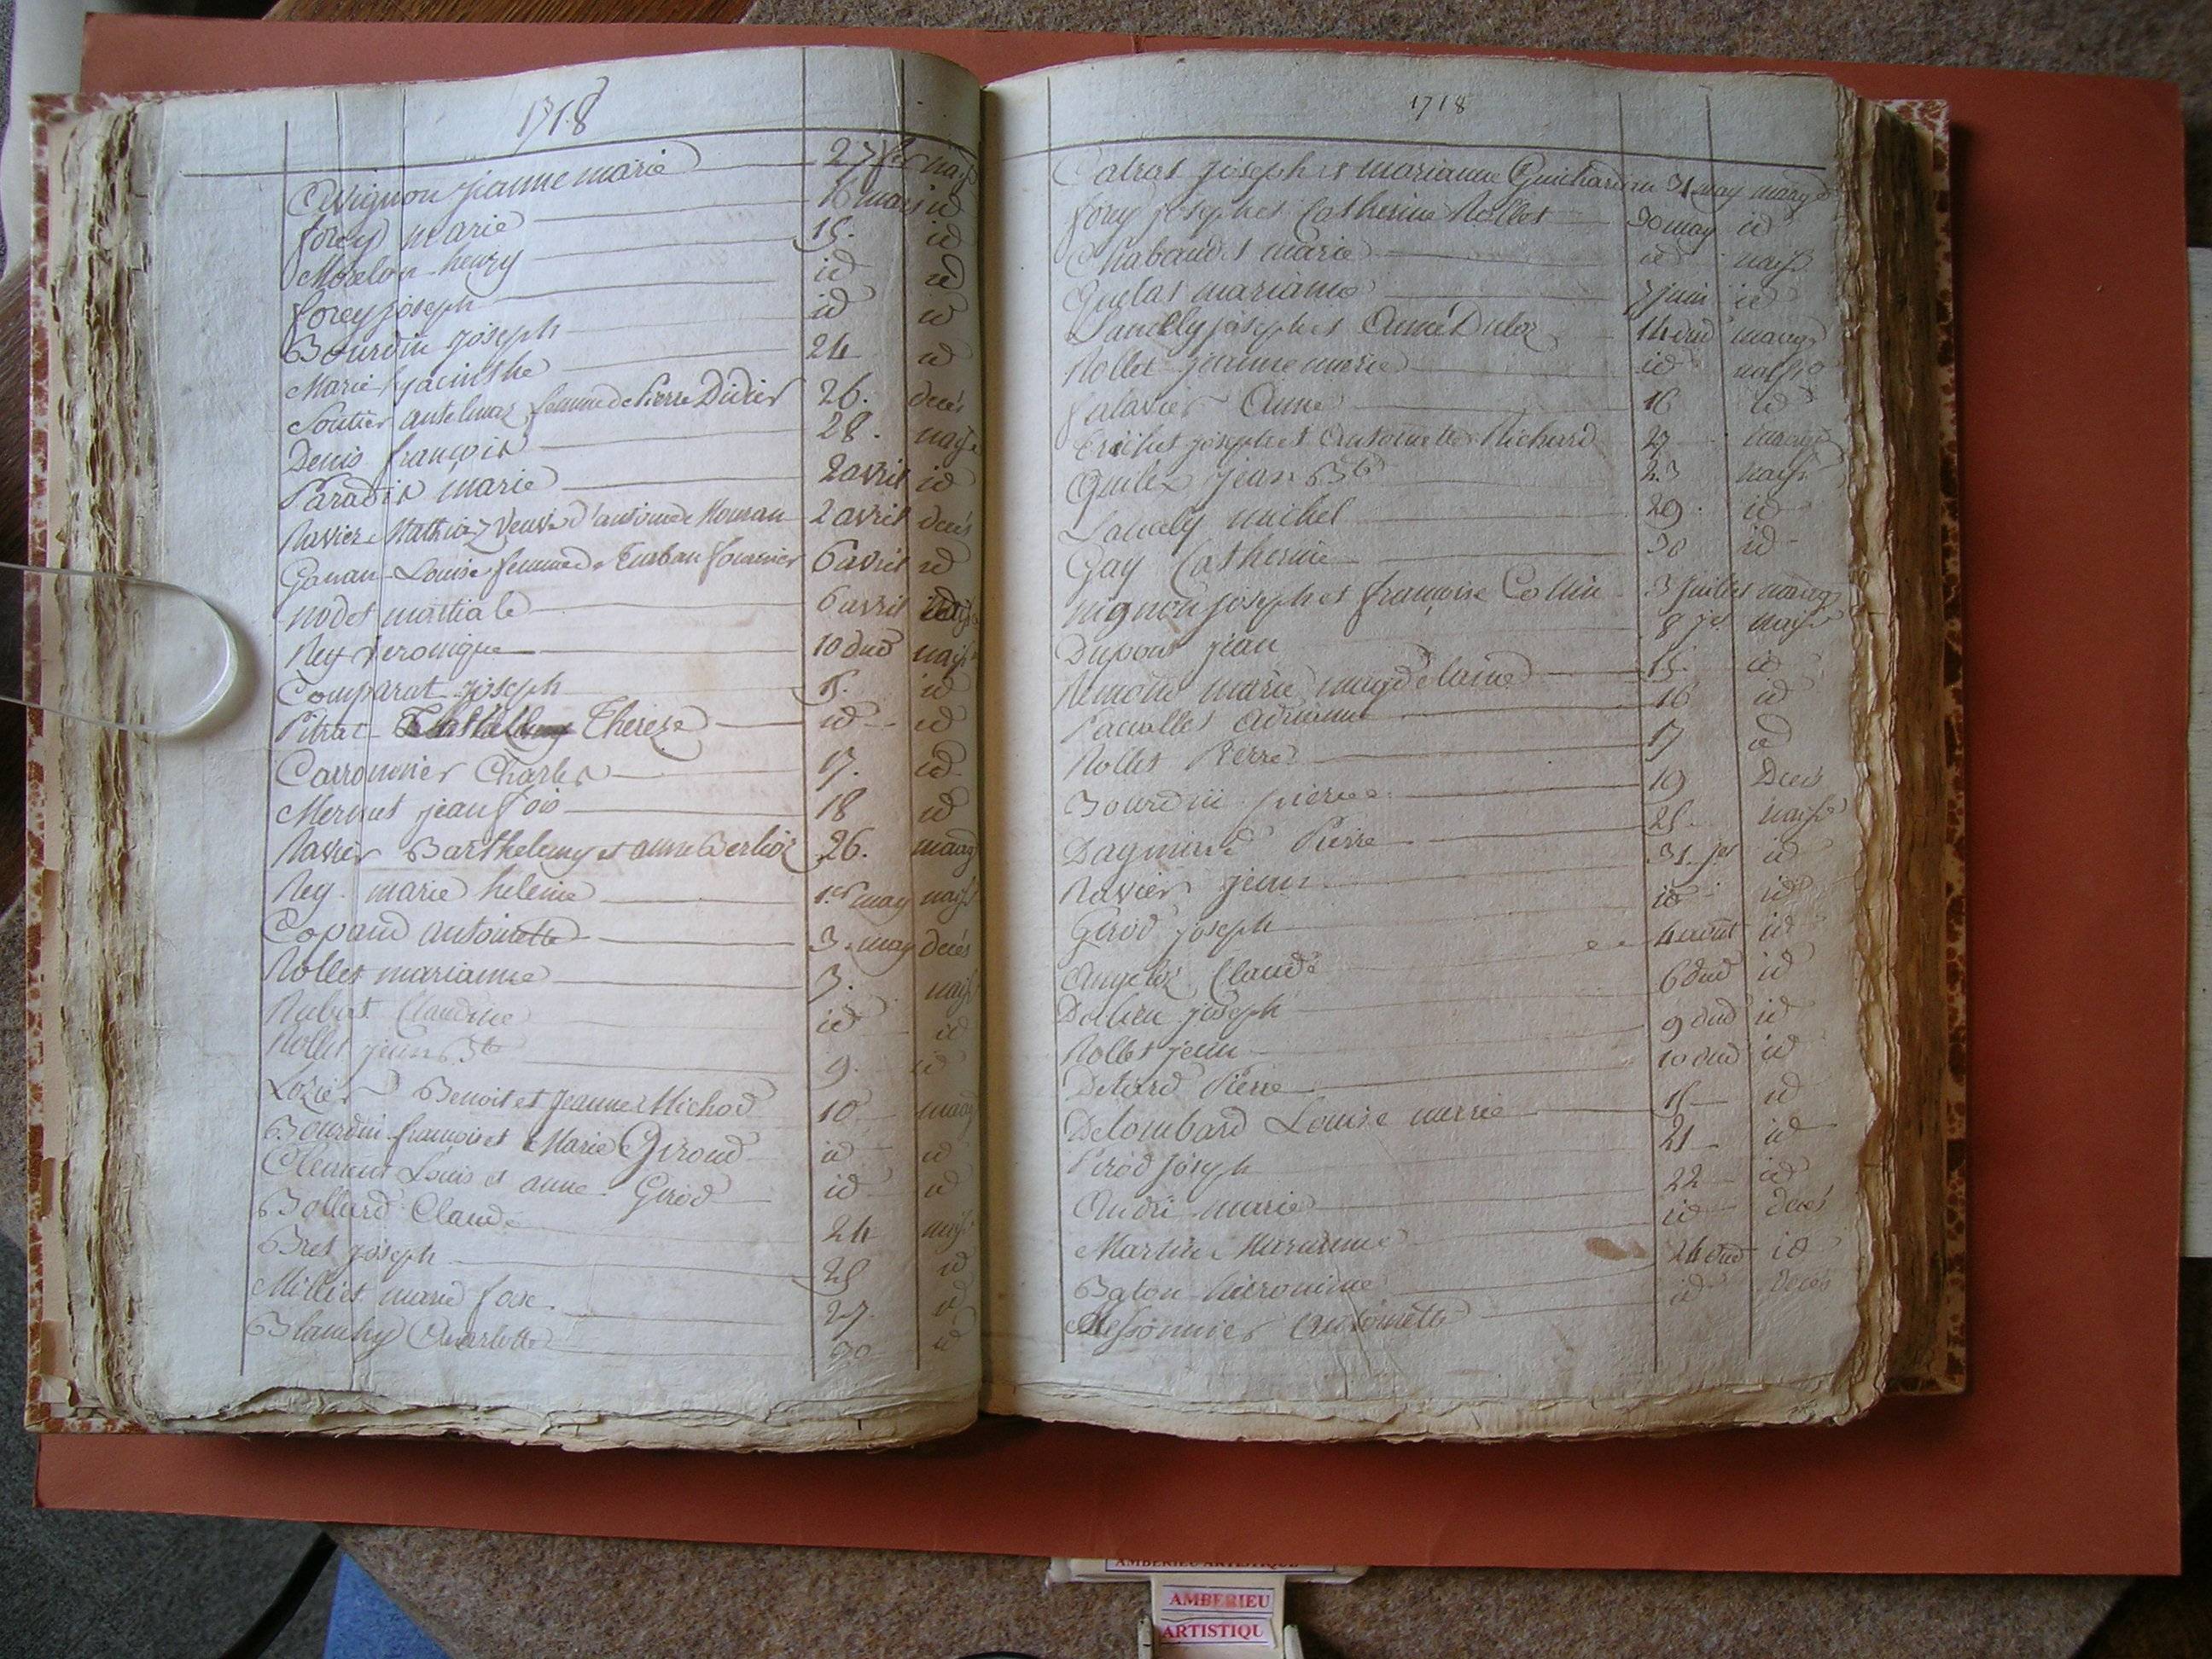 1718
Jeanne marie 27 fer naiss
forey marie 16 mars id
Morelon henry 15. id
forey joseph id id
Bourdin joseph id id
Marie hyacinthe 24 id
Soutier antelmaz femme de Pierre Didier 26. deces
Denis françois 28. naiss
Paradis marie 2 avril id
Ravier Mathia veuve d'antoine 2 avril deces
Louise femme de Fournier 6 avril id
nodet martiale 6 avril
Rey Veronique 10 dud naiss
Comparat joseph 15. id
Pitrat Thereze id id
Carronnier Charles 17. id
Mermet jean fois 18 id
Ravier Barthelemy et anne Berlioz 26. mariag
Rey marie heleine 1er may naiss
Copand antoinette 3. may deces
Rollet marianne 3. naiss
Claudine id id
Rollet jean Bte 9. id
Lozier Benoit et Jeanne Michod 10 mariag
Bourdin francois et Marie Giroud id id
Clement Louis et anne Girod id id
Bollard Claude 24 naiss
Bret joseph 25 id
Milliet marie 27. id
Blanchy id
1718
joseph et marianne Guichardon 31 may mariag
forey joseph et Catherine Rollet 30 may id
Chabaudet marie id naiss
Quelat marianne 7 juin id
joseph et 14 dud mariag
Rollet jeanne marie id naiss
Anne 16 id
joseph et Antoinette Richard 27 mariag
jean Bte 23 naiss
michel 29. id
Gay Catherine 30 id
mignon joseph et françoise Collin 3 juillet mariag
Dupont jean 8 jet naiss
Remond marie magdelaine 15. id
16 id
Rollet Pierre 17 id
Bourdin pierre 19 Deces
Pierre 25 naiss
Ravier jean 31. jet id
Girod joseph id id
Angeloz Claude 4 aout id
joseph 6 dud id
Rollet jean 9 dud id
Pierre 10 dud id
Delombard Louise marie 15 id
Pirod joseph 21 id
André marie 22 id
Martin Marianne id deces
hieronime 24 dud id
Messonnier Antoinette id deces
AMBERIEU ARTISTIQUE
AMBERIEU
ARTISTIQU